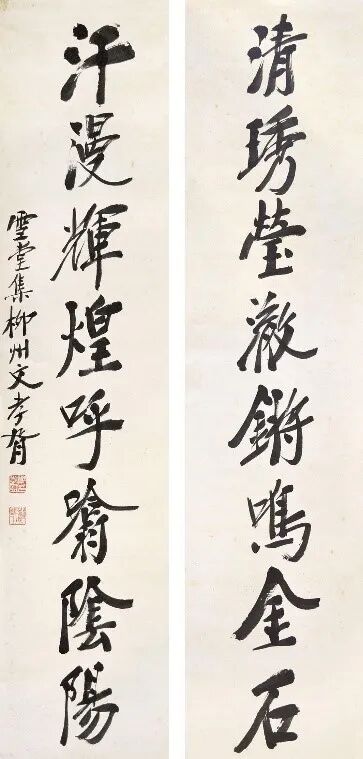 清琇瑩澈鏘鳴金石
汗漫輝煌呼噏陰陽
雪堂集柳州文孝胥